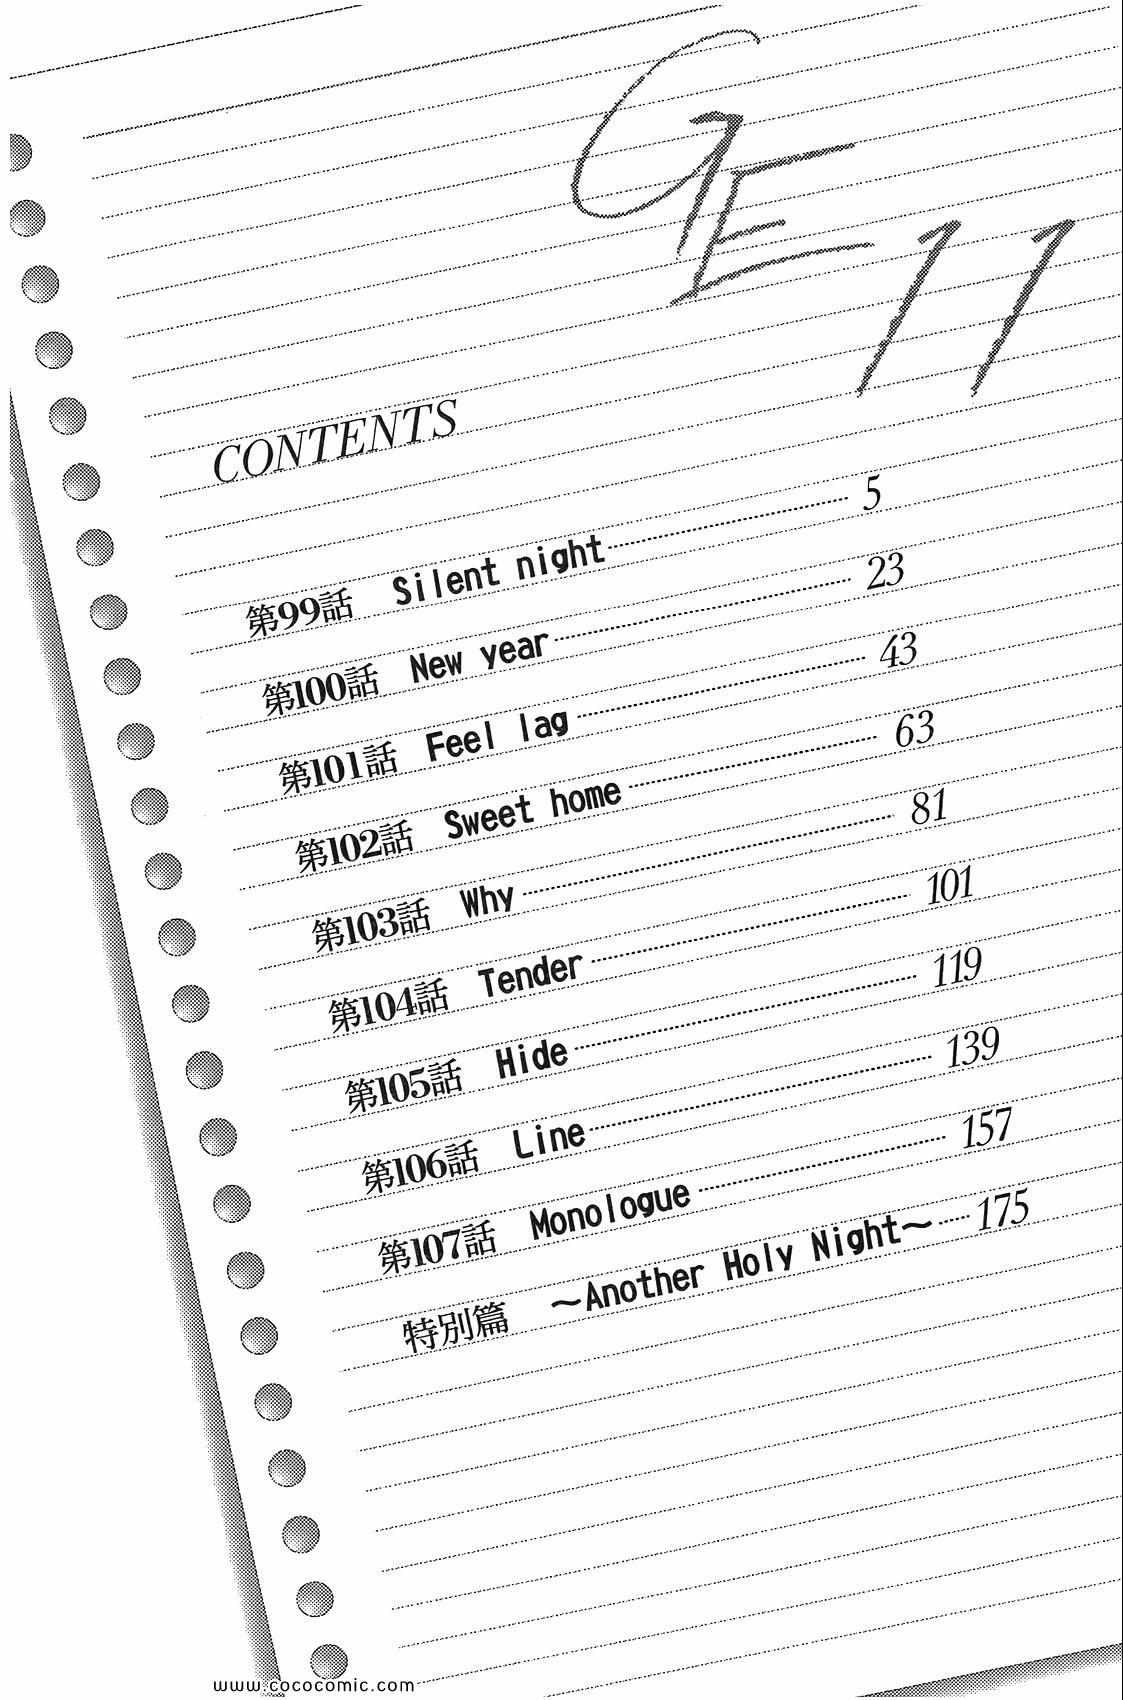 GE 11
CONTENTS
第99話 Silent night 5
第100話 New year 23
第101話 Feel lag 43
第102話 Sweet home 63
第103話 Why 81
第104話 Tender 101
第105話 Hide 119
第106話 Line 139
第107話 Monologue 157
特別篇 ～Another Holy Night～ 175
www.cococomic.com